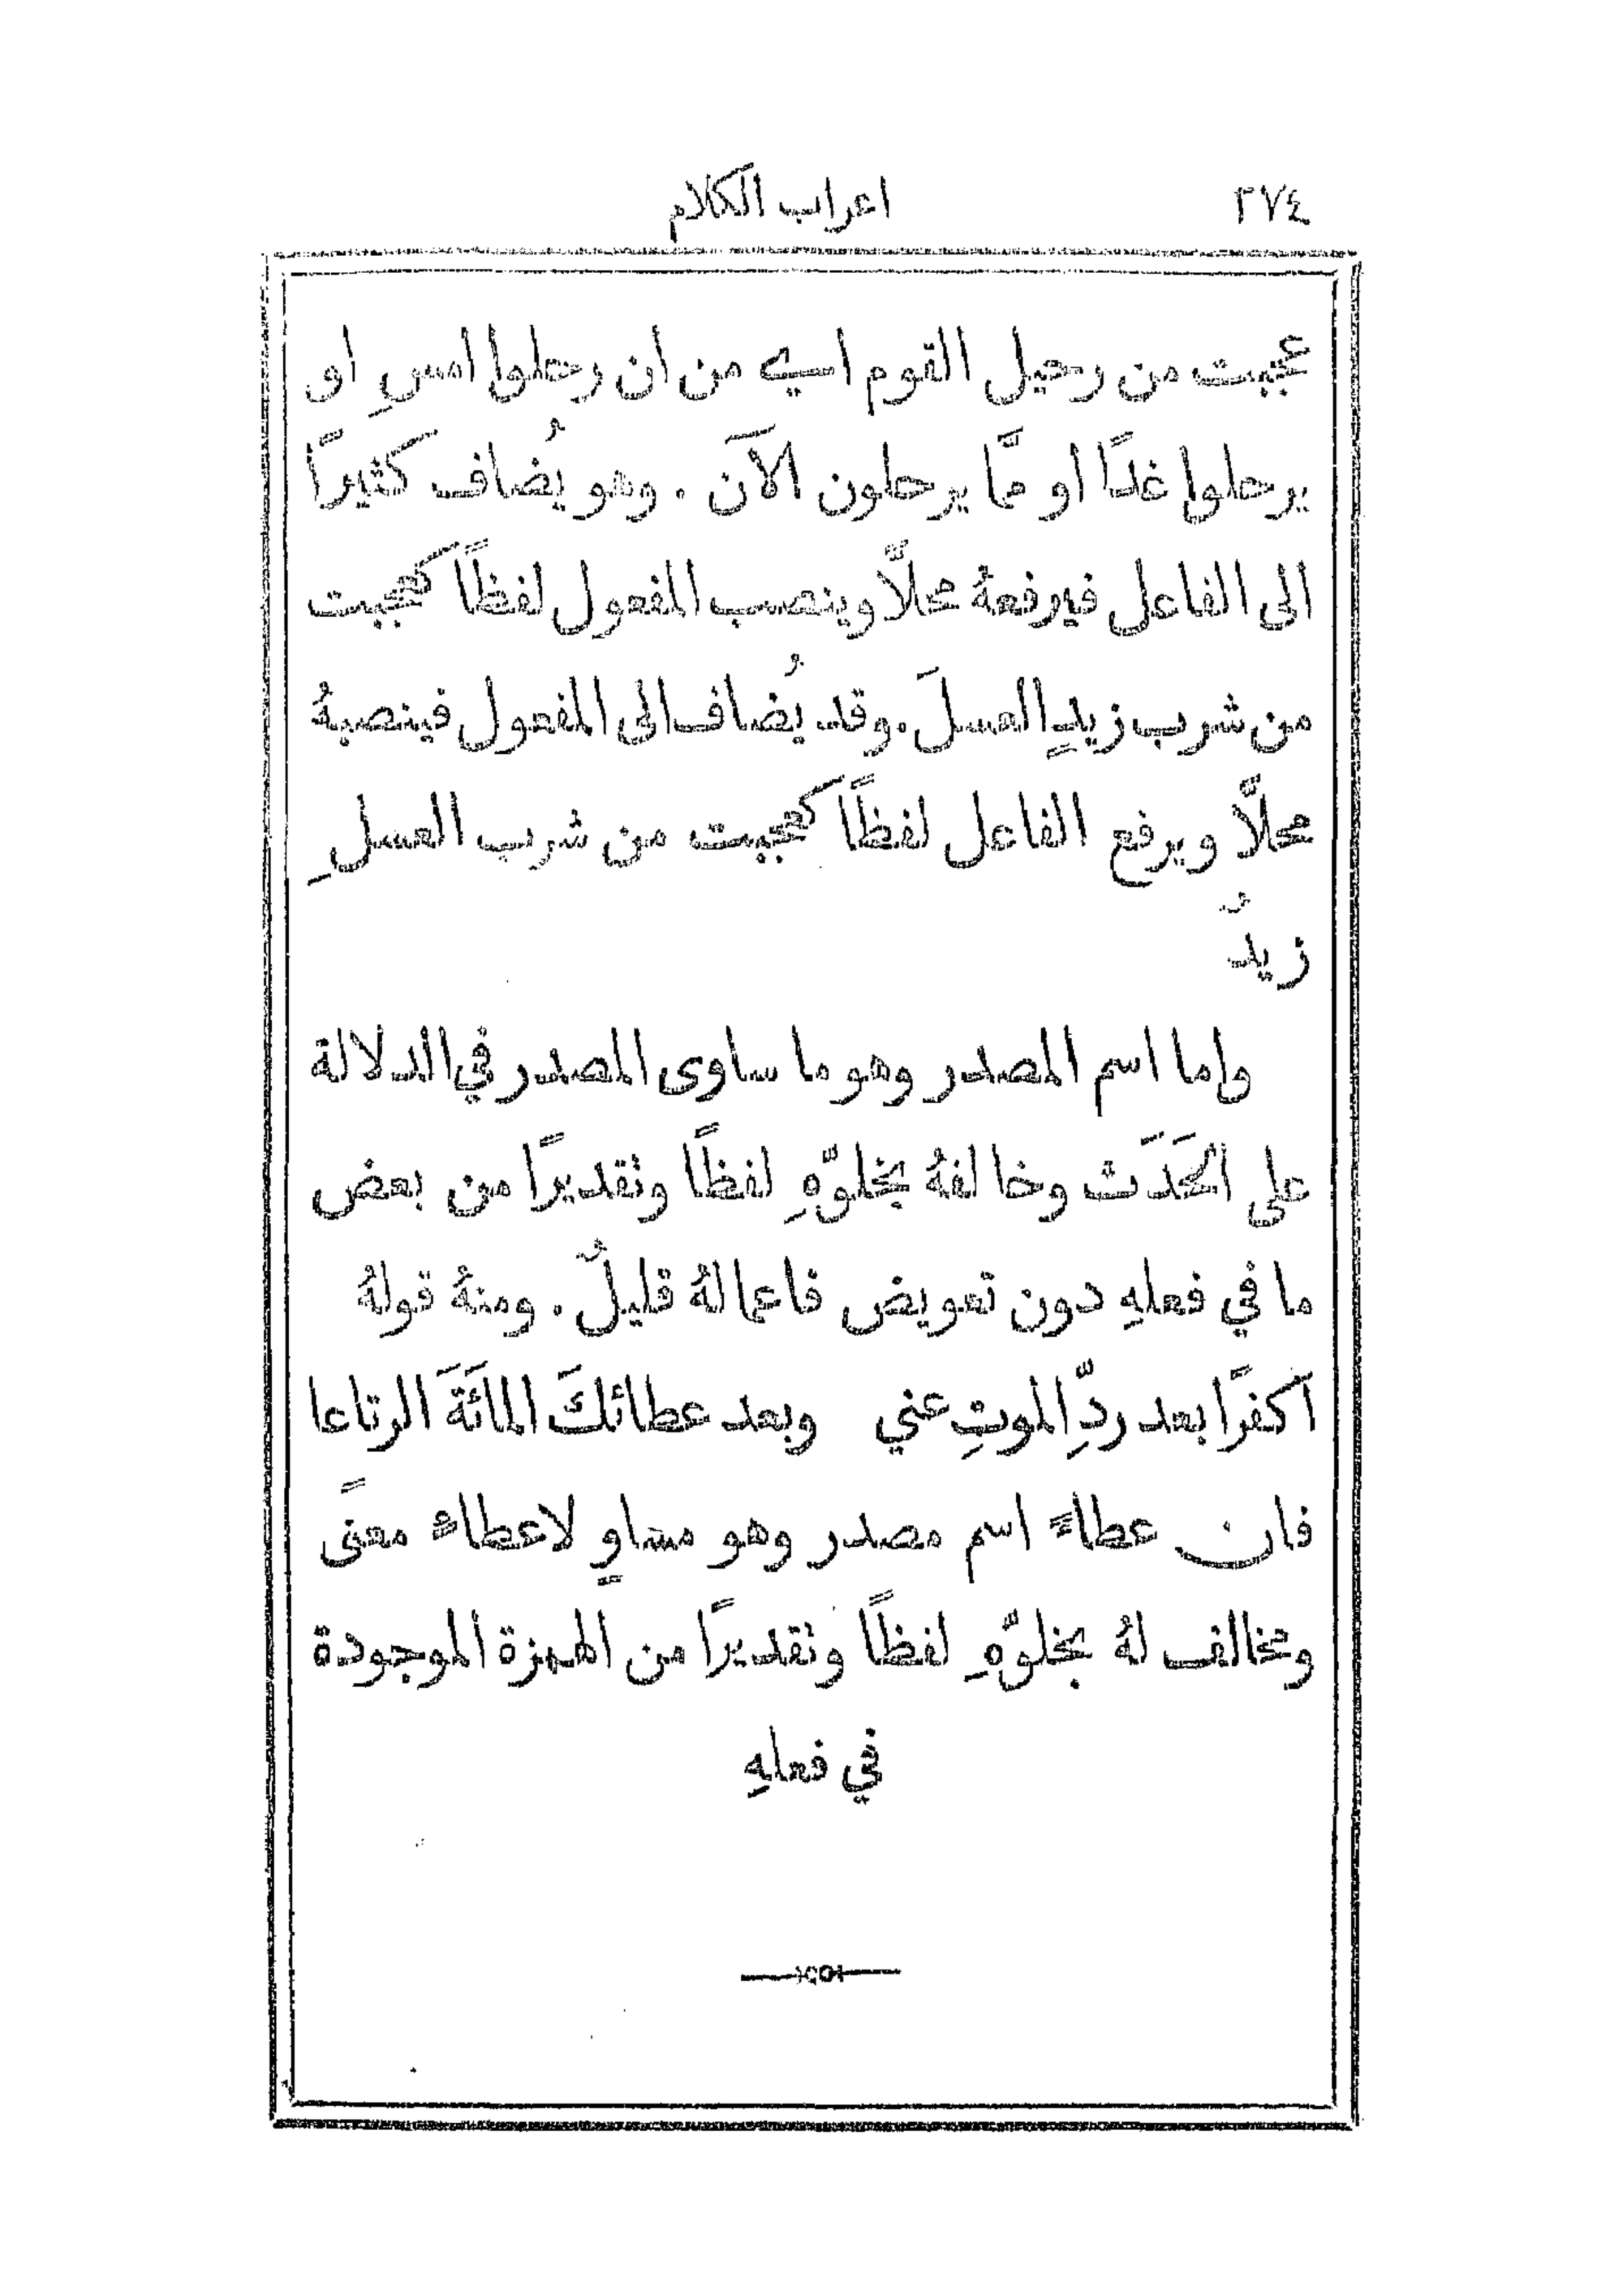 ٢٧٤ اعراب الكلام
عجبت من رحيل القوم اي من ان رحلوا امسِ او
يرحلوا غدًا او ممَّا يرحلون الآنَ . وهو يُضاف كثيرًا
الى الفاعل فيرفعهُ محلاًّ وينصب المفعول لفظًا كعجبت
من شرب زيدٍ العسلَ . وقد يُضاف الى المفعول فينصبهُ
محلاًّ ويرفع الفاعل لفظًا كعجبت من شرب العسلِ
زيدٌ
واما اسم المصدر وهو ما ساوى المصدر في الدلالة
على الحَدَث وخالفهُ بخلوّهِ لفظًا وتقديرًا من بعض
ما في فعلهِ دون تعويض فاعمالهُ قليلٌ . ومنهُ قولهُ
أكفرًا بعد ردِّ الموتِ عني وبعد عطائكَ المائَةَ الرتاعا
فان عطاءً اسم مصدر وهو مساوٍ لاعطاءٍ معنًى
ومخالف لهُ بخلوّهِ لفظًا وتقديرًا من الهمزة الموجودة
في فعلهِ